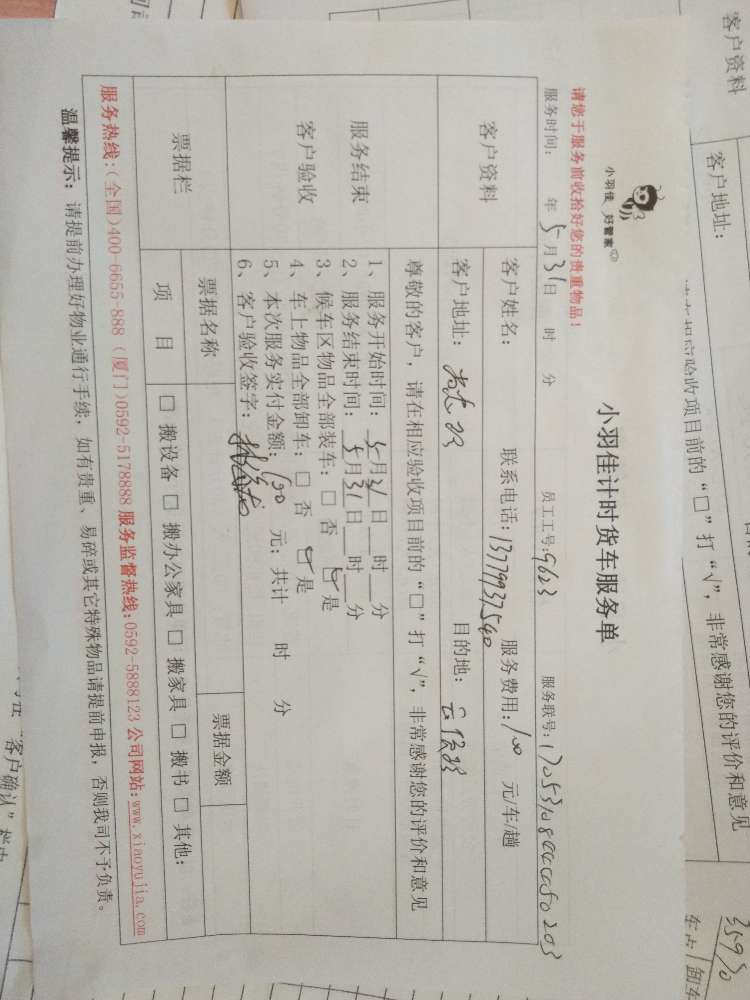 小羽佳 好管家
小羽佳计时货车服务单
请您于服务前收拾好您的贵重物品！
服务时间： 年5月31日 时 分 员工工号：9623 服务联号：
客户资料
客户姓名： 联系电话：13779937540 服务费用：100 元/车/趟
客户地址： 目的地：
服务结束
客户验收
尊敬的客户，请在相应验收项目前的“□”打“√”，非常感谢您的评价和意见
1、服务开始时间：5月31日__时__分
2、服务结束时间：5月31日__时__分
3、候车区物品全部装车：□ 否 ☑是
4、车上物品全部卸车：□ 否 ☑是
5、本次服务实付金额：100 元；共计 时 分
6、客户验收签字：
票据栏
票据名称 票据金额
项 目 □ 搬设备 □ 搬办公家具 □ 搬家具 □ 搬书 □ 其他：
服务热线：（全国）400-6655-888（厦门）0592-5178888 服务监督热线：0592-5888123 公司网站：www.xiaoyujia.com
温馨提示：请提前办理好物业通行手续，如有贵重、易碎或其它特殊物品请提前申报，否则我司不予负责。
客户资料
客户地址：
相应验收项目前的“□”打“√”，非常感谢您的评价和意见
客户确认”栏